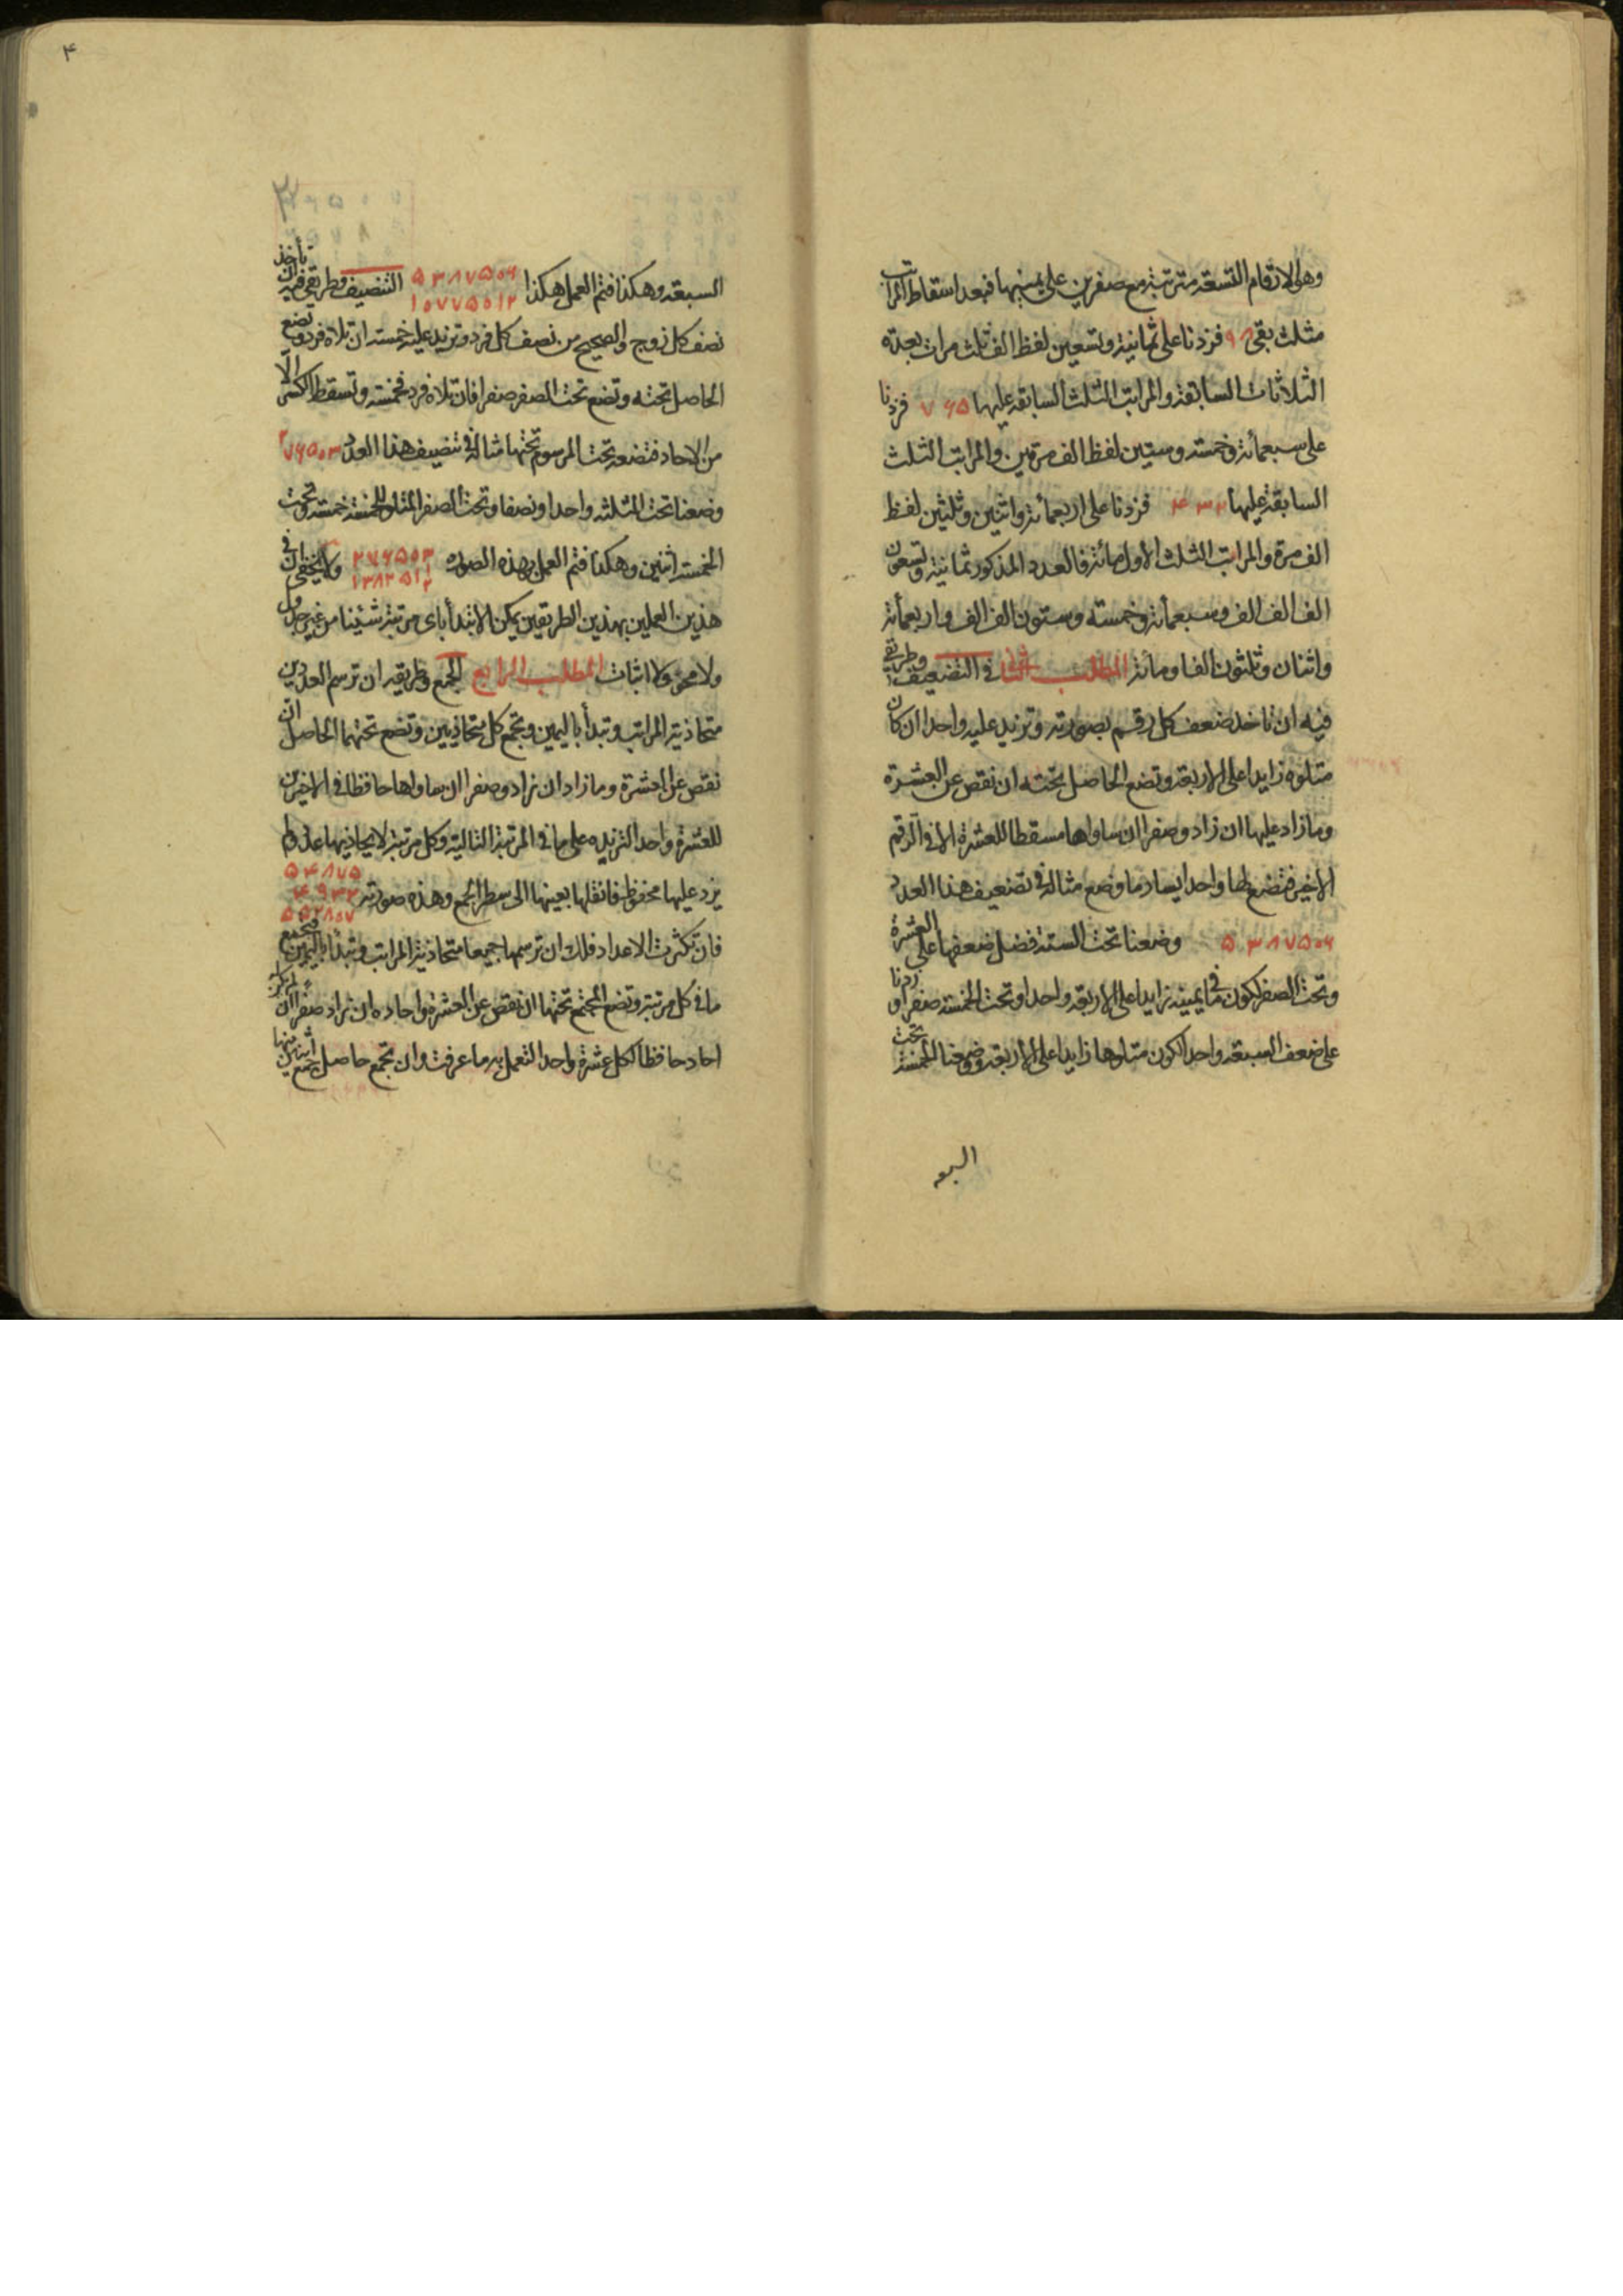 وهى الارقام التسعة مترتبة مع صفرين على يمينها فبعد اسقاط المراتب
مثلث بقى ٩٨ فزدنا على ثمانية وتسعين لفظ الف ثلث مرات بعدة
الثلاثات السابقة والمراتب الثلث السابقة عليها ٧٦٥ فزدنا
على سبعمائة وخمسة وستين لفظ الف مرتين والمراتب الثلث
السابقة عليها ٤٣٢ فزدنا على اربعمائة واثنين وثلثين لفظ
الف مرة والمراتب الثلث الاول مائة فالعدد المذكور ثمانية وتسعون
الف الف الف وسبعمائة وخمسة وستون الف الف واربعمائة
واثنان وثلثون الفا ومائة المطلب الثانى فى التضعيف وطريق
فيه ان تاخذ ضعف كل رقم بصورته وتزيد عليه واحدا ان كان
متلوه زايدا على الاربعة وتضع الحاصل تحته ان نقص عن العشرة
وما زاد عليها ان زاد وصفرا ان ساواها مسقطا للعشرة الا فى الرقم
الاخير فتضع لها واحدا يسار ما وضع مثاله فى تضعيف هذا العدد
٥٣٨٧٥٠٦ وضعنا تحت الستة فضل ضعفها على العشرة
وتحت الصفر لكون ما فى يمينه زايدا على الاربعة واحدا وتحت الخمسة صفرا وزدنا
على ضعف السبعة واحدا لكون متلوها زايدا على الاربعة وضعنا الخمسة تحت
السبعه
٤
السبعة وهكذا فتم العمل هكذا ٥٣٨٧٥٠٦ التنصيف وطريق فيه ان تأخذ
١٠٧٧٥٠١٢
نصف كل زوج والصحيح من نصف كل فرد وتزيد عليه خمسة ان تلاه فرد وتضع
الحاصل تحته وتضع تحت الصفر صفرا فان تلاه فرد فخمسة وتسقط الكسر الّا
من الاحاد فتضعه تحت المرسوم تحتها مثاله فى تنصيف هذا العدد ٢٧٦٥٠٣
وضعنا تحت الثلثة واحدا ونصفا وتحت الصفر المتلو للخمسة خمسة وتحت
الخمسة اثنين وهكذا فتم العمل بهذه الصوره ٢٧٦٥٠٣ ولا يخفى ان فى
١٣٨٢٥١
هذين العملين بهذين الطريقين يمكن الابتدأ باى مرتبة شئنا من غير جدول
ولا محو ولا اثبات المطلب الرابع الجمع وطريقه ان ترسم العددين
متحاذية المراتب وتبدأ باليمين وتجمع كل متحاذيين وتضع تحتهما الحاصل ان
نقص عن العشرة وما زاد ان زاد وصفرا ان ساواها حافظا فى الاخيرين
للعشرة واحدا لتزيده على ما فى المرتبة التالية وكل مرتبة لا يحاذيها عدد ولم
يزد عليها محفوظ فانقلها بعينها الى سطر الجمع وهذه صورته ٥٤٨٧٥
٤٩٣٢
٥٩٨٠٧
فان تكثرت الاعداد فلك ان ترسمها جميعا متحاذية المراتب وتبدأ باليمين فتجمع
ما فى كل مرتبة وتضع المجتمع تحتها ان نقص عن العشرة واحاده ان زاد صفرا ان لم يكن
احاد حافظا لكل عشرة واحدا لتعمل به ما عرفت وان تجمع حاصل جمع اثنين منها